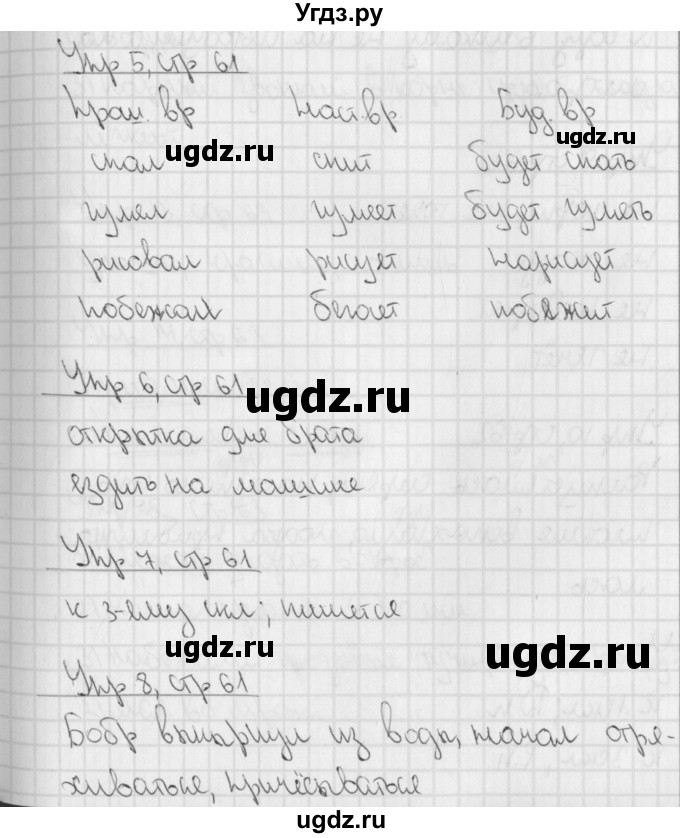 Угдз.ру
Упр 5, стр 61
Прош. вр Наст. вр. Буд. вр
ugdz.ru ugdz.ru
спал спит будет спать
шумел шумеет будет шуметь
рисовал рисует нарисует
ugdz.ru ugdz.ru
побежал бегает побежит
Упр 6, стр 61
ugdz.ru
открытка для брата
ездить на машине
Упр 7, стр 61
к 3-ему скл; пишется
ugdz.ru
ugdz.ru
Упр 8, стр 61
Бобр вынырнул из воды, начал отря-
хиваться, причёсываться
ugdz.ru